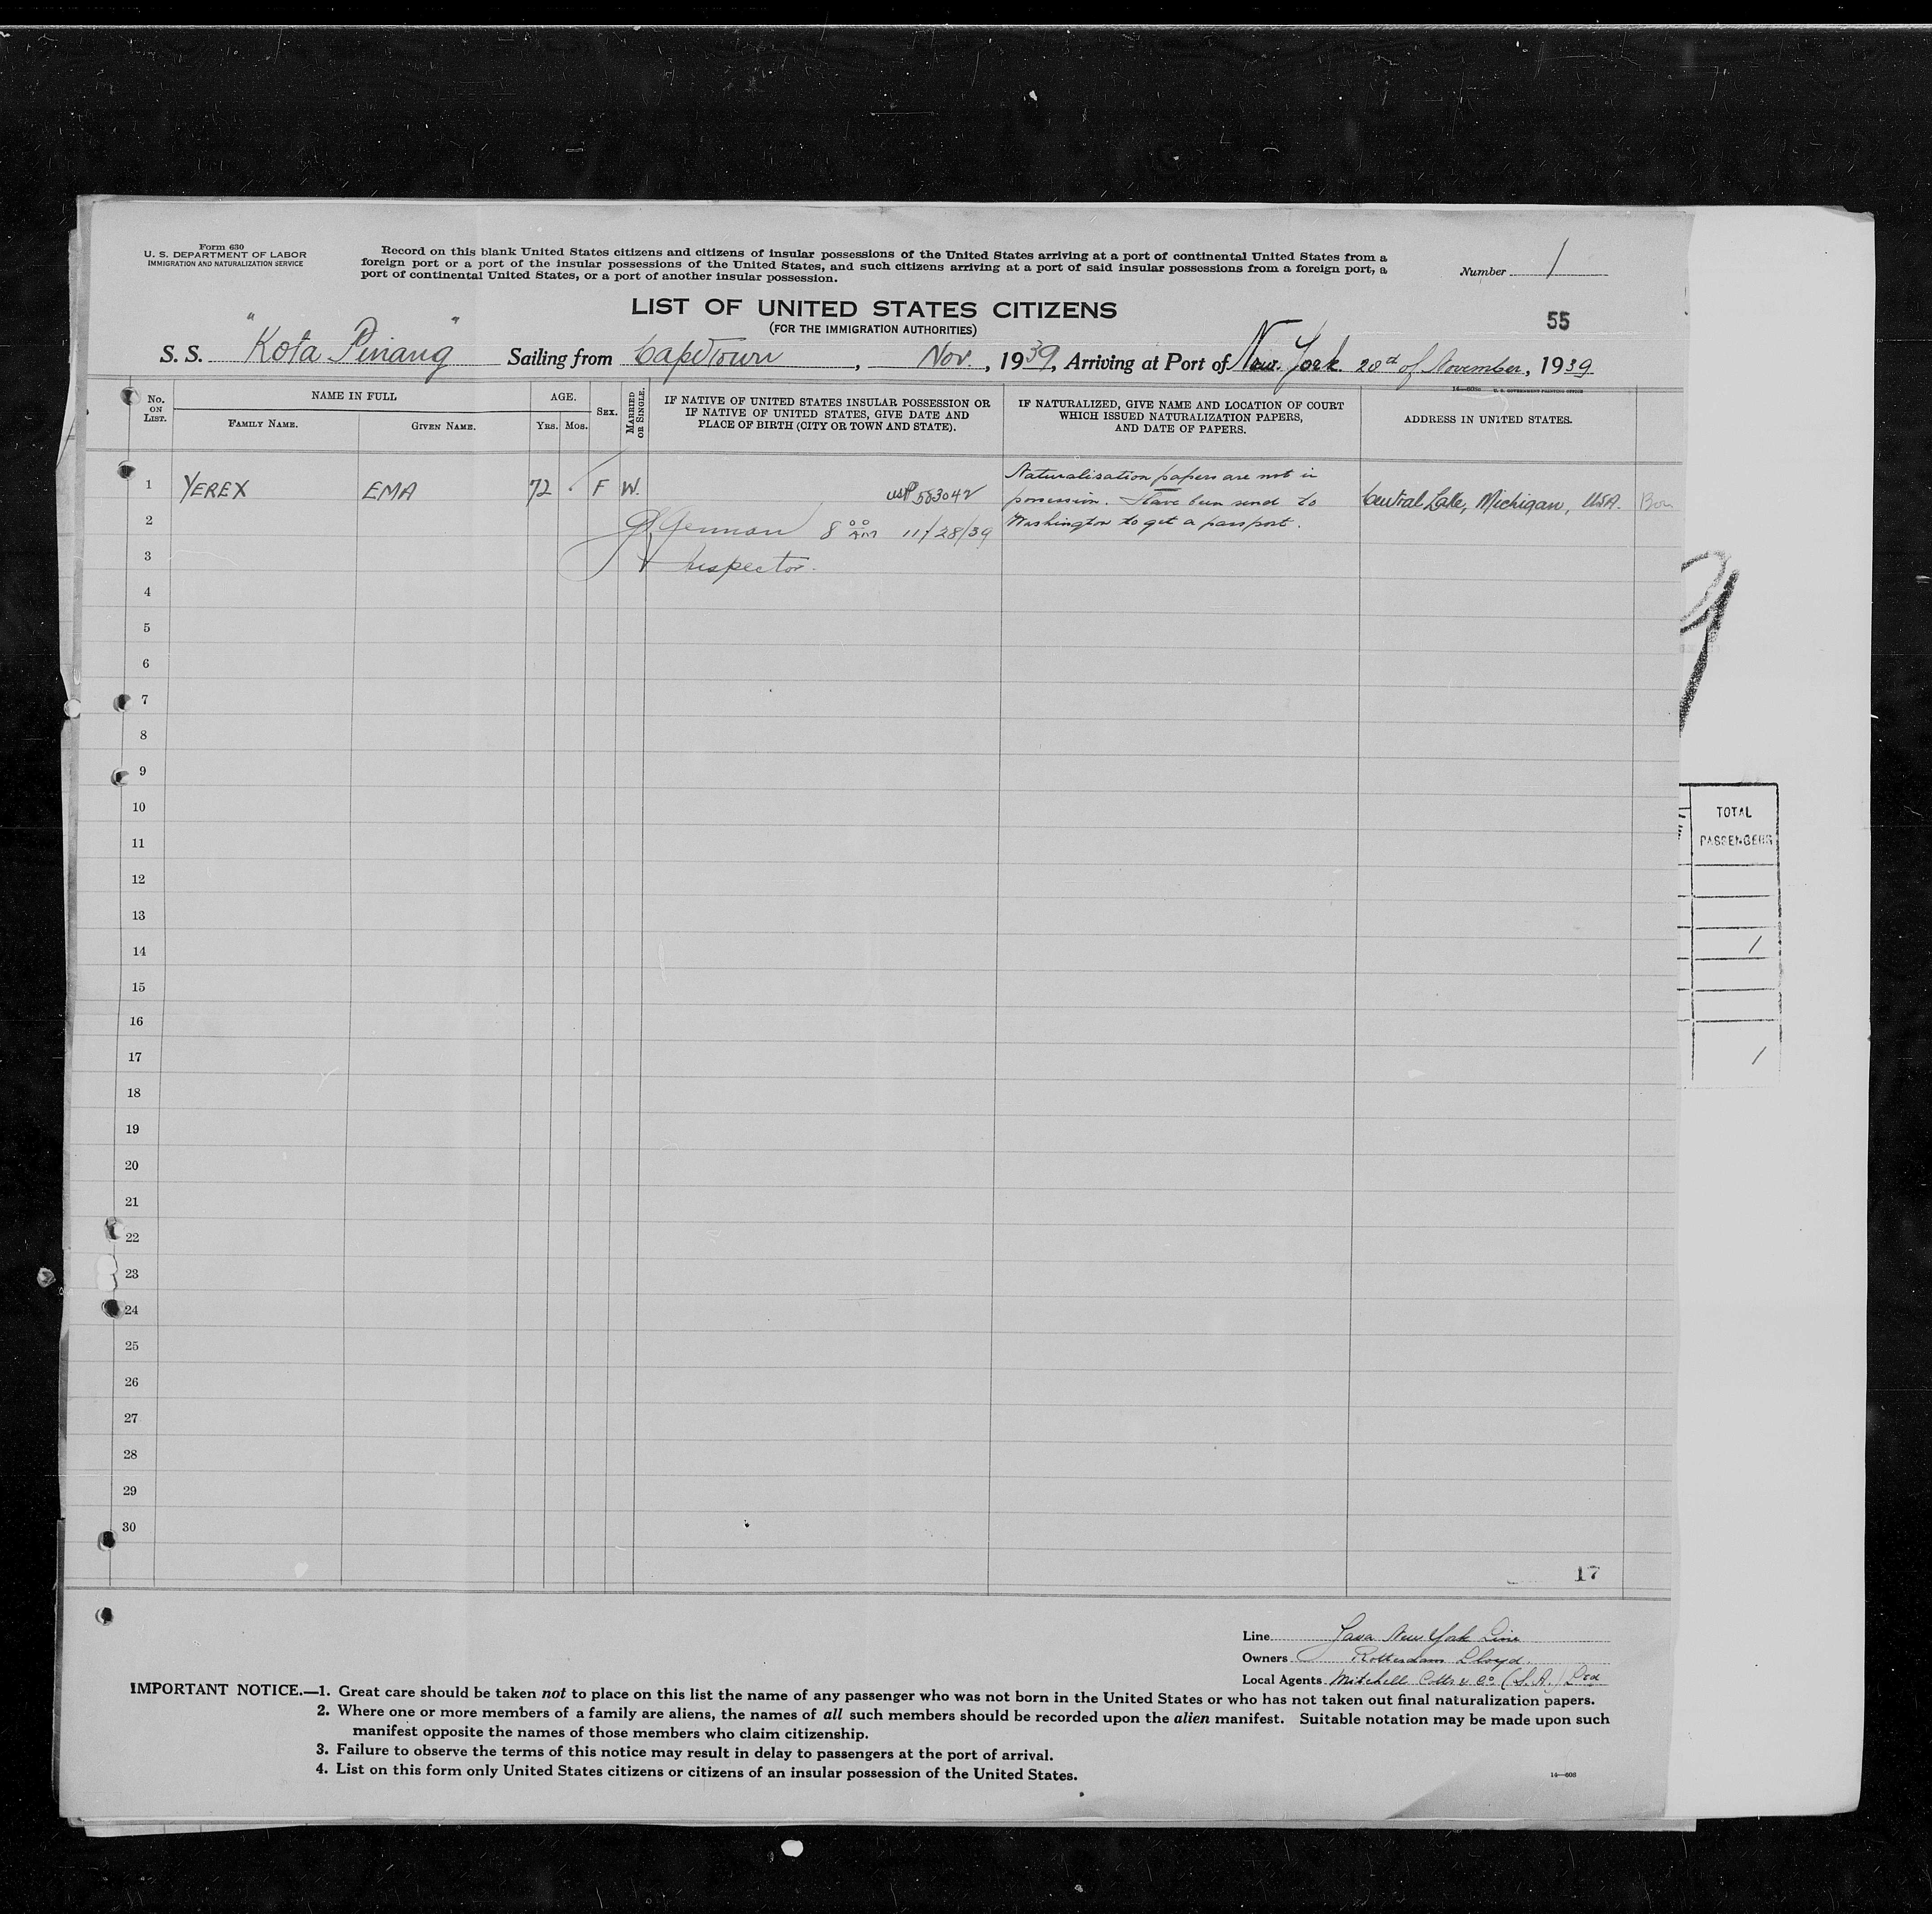 Form 630
U. S. DEPARTMENT OF LABOR
IMMIGRATION AND NATURALIZATION SERVICE
Record on this blank United States citizens and citizens of insular possessions of the United States arriving at a port of continental United States from a
foreign port or a port of the insular possessions of the United States, and such citizens arriving at a port of said insular possessions from a foreign port, a
port of continental United States, or a port of another insular possession.
Number 1
LIST OF UNITED STATES CITIZENS
(FOR THE IMMIGRATION AUTHORITIES)
55
S. S. "Kota Pinang" Sailing from CapeTown, Nov., 1939, Arriving at Port of New York. 28th of November, 1939
U. S. GOVERNMENT PRINTING OFFICE
No. ON LIST.
NAME IN FULL
FAMILY NAME.
GIVEN NAME.
AGE.
YRS.
MOS.
SEX.
MARRIED OR SINGLE.
IF NATIVE OF UNITED STATES INSULAR POSSESSION OR
IF NATIVE OF UNITED STATES, GIVE DATE AND
PLACE OF BIRTH (CITY OR TOWN AND STATE).
IF NATURALIZED, GIVE NAME AND LOCATION OF COURT
WHICH ISSUED NATURALIZATION PAPERS,
AND DATE OF PAPERS.
ADDRESS IN UNITED STATES.
1 YEREX EMA 72 F W. USP 583042
Naturalisation papers are not in
possession. Have been send to
Washington to get a passport.
Central Lake, Michigan, USA.
2
8 00 AM 11/28/39
3
Inspector.
4
5
6
7
8
9
10
11
12
13
14
15
16
17
18
19
20
21
22
23
24
25
26
27
28
29
30
TOTAL
PASSENGERS
1
1
17
Line Java New York Line
Owners Rotterdam Lloyd.
Local Agents Mitchell Cotts & Co (S.A.) Ltd
IMPORTANT NOTICE.—1. Great care should be taken not to place on this list the name of any passenger who was not born in the United States or who has not taken out final naturalization papers.
2. Where one or more members of a family are aliens, the names of all such members should be recorded upon the alien manifest. Suitable notation may be made upon such
manifest opposite the names of those members who claim citizenship.
3. Failure to observe the terms of this notice may result in delay to passengers at the port of arrival.
4. List on this form only United States citizens or citizens of an insular possession of the United States.
14—608